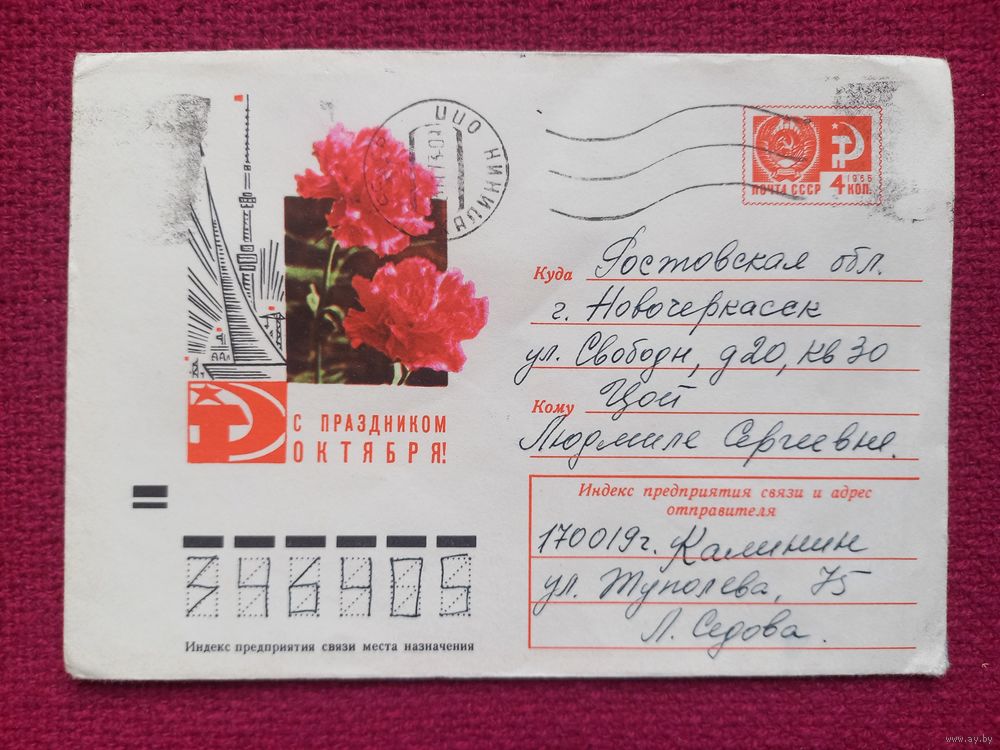 ЦПО КАЛИНИН
ПОЧТА СССР
1966
4 КОП.
Куда Ростовская обл.
г. Новочеркасск
ул. Свободы, д 20, кв 30
Кому Цой
Людмиле Сергеевне.
С ПРАЗДНИКОМ
ОКТЯБРЯ!
Индекс предприятия связи и адрес
отправителя
170019 г. Калинин
ул. Туполева, 75
Л. Седова.
346405
Индекс предприятия связи места назначения
www.ay.by